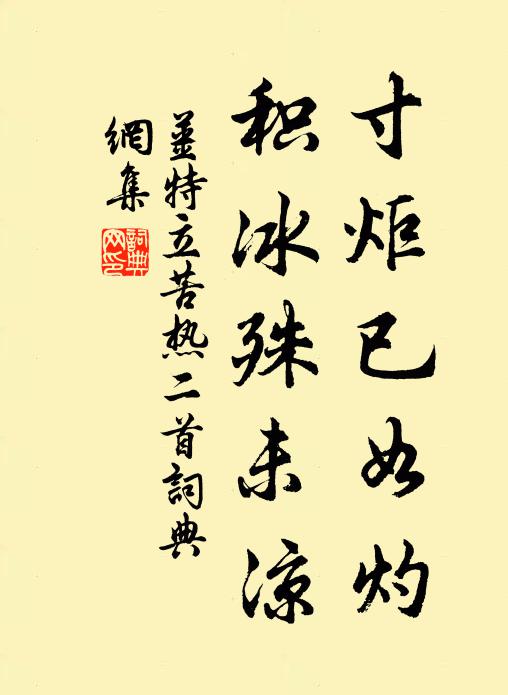 寸炬已如灼
积冰殊未凉
姜特立苦热二首詞典
網集
詞典
网印